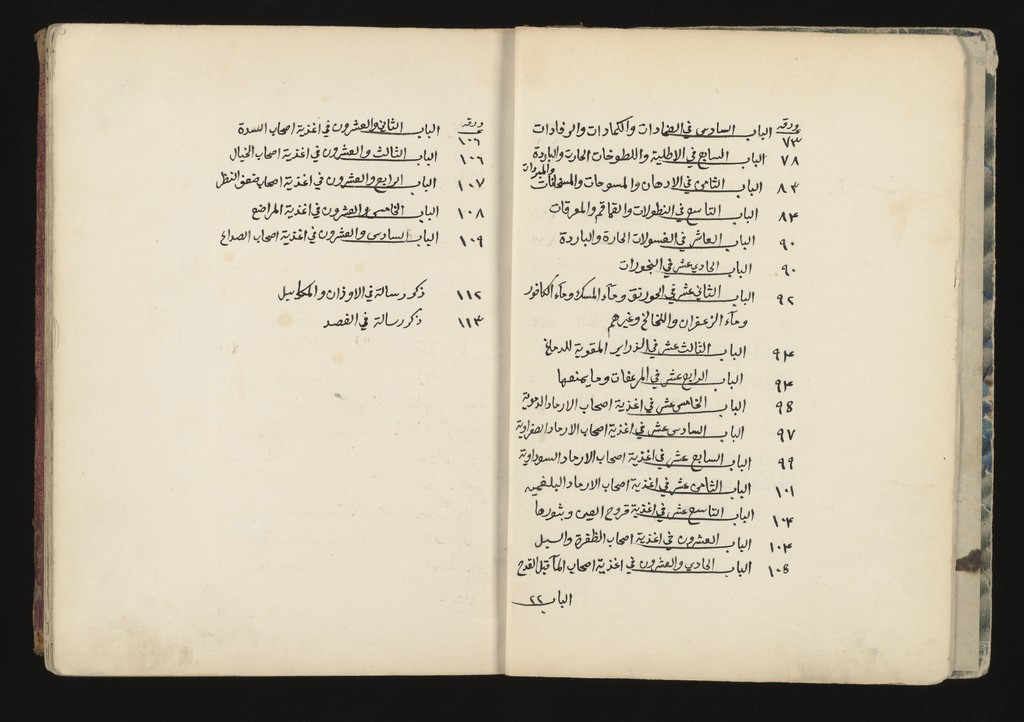 ورقة الباب السادس في الضمادات والكمادات والرفادات
٧٣
٧٨ الباب السابع في الاطلية واللطوخات الحارة والباردة
والمبردات
٨٣ الباب الثامن في الادهان والمسوحات والمسخنات
٨٤ الباب التاسع في النطولات والقماقم والمعرقات
٩٠ الباب العاشر في الغسولات الحارة والباردة
٩٠ الباب الحادي عشر في البخورات
٩٢ الباب الثاني عشر في الخورنق وماء المسك وماء الكافور
وماء الزعفران واللخالخ وغيرهم
٩٤ الباب الثالث عشر في الذراير المقوية للدماغ
٩٤ الباب الرابع عشر في المرعفات وما يمنعها
٩٥ الباب الخامس عشر في اغذية اصحاب الارماد الدموية
٩٧ الباب السادس عشر في اغذية اصحاب الارماد الصفراوية
٩٩ الباب السابع عشر في اغذية اصحاب الارماد السوداوية
١٠١ الباب الثامن عشر في اغذية اصحاب الارماد البلغميه
١٠٣ الباب التاسع عشر في اغذية قروح العين وبثورها
١٠٤ الباب العشرون في اغذية اصحاب الظفرة والسبل
١٠٥ الباب الحادي والعشرون في اغذية اصحاب الماء قبل القدح
الباب ٢٢
ورقة الباب الثاني والعشرون في اغذية اصحاب السدة
١٠٦
١٠٦ الباب الثالث والعشرون في اغذية اصحاب الخيال
١٠٧ الباب الرابع والعشرون في اغذية اصحاب ضعف النظر
١٠٨ الباب الخامس والعشرون في اغذية المراضع
١٠٩ الباب السادس والعشرون في اغذية اصحاب الصداع
١١٢ ذكر رسالة في الاوزان والمكاييل
١١٣ ذكر رسالة في الفصد